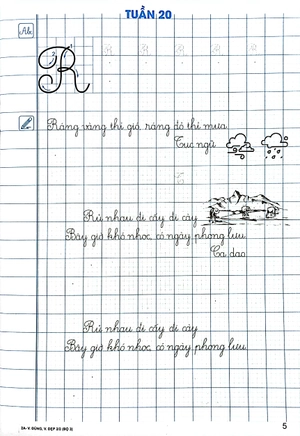 TUẦN 20
Ab
R
R R R R R
Ráng vàng thì gió, ráng đỏ thì mưa.
Tục ngữ
Rủ nhau đi cấy đi cày
Bây giờ khó nhọc, có ngày phong lưu.
Ca dao
Rủ nhau đi cấy đi cày
Bây giờ khó nhọc, có ngày phong lưu.
5